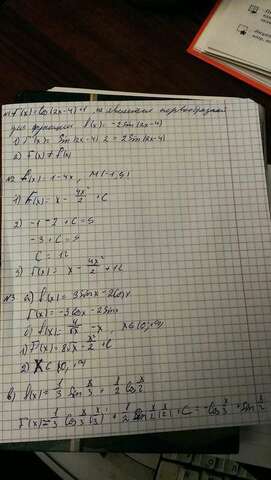 №1 F(x)=cos(2x-4)+1, не является первообразной
для функции f(x)=-2sin(2x-4)
1) F'(x)= Sin(2x-4) 2 = 2Sin(2x-4)
2) F'(x) ≠ f(x)
№2 f(x)=1-4x, M(-1,9)
1) F(x)= x - 4x²/2 + C
2) -1-2+C=9
-3+C=9
C=12
3) F(x)= x - 4x²/2 + 12
№3 а) f(x)=3sinx-2cosx
F(x)=-3cosx-2sinx
б) f(x)=4/√x - x, x∈(0;∞)
1) F(x)=8√x - x²/2 + C
2) X∈(0,+∞)
в) f(x)=1/3 Sin x/3 + 1/2 Cos x/2
F(x)=1/3 Cos x/3 (x/3) + 1/2 Sin x/2 (x/2) + C = -Cos x/3 + Sin x/2